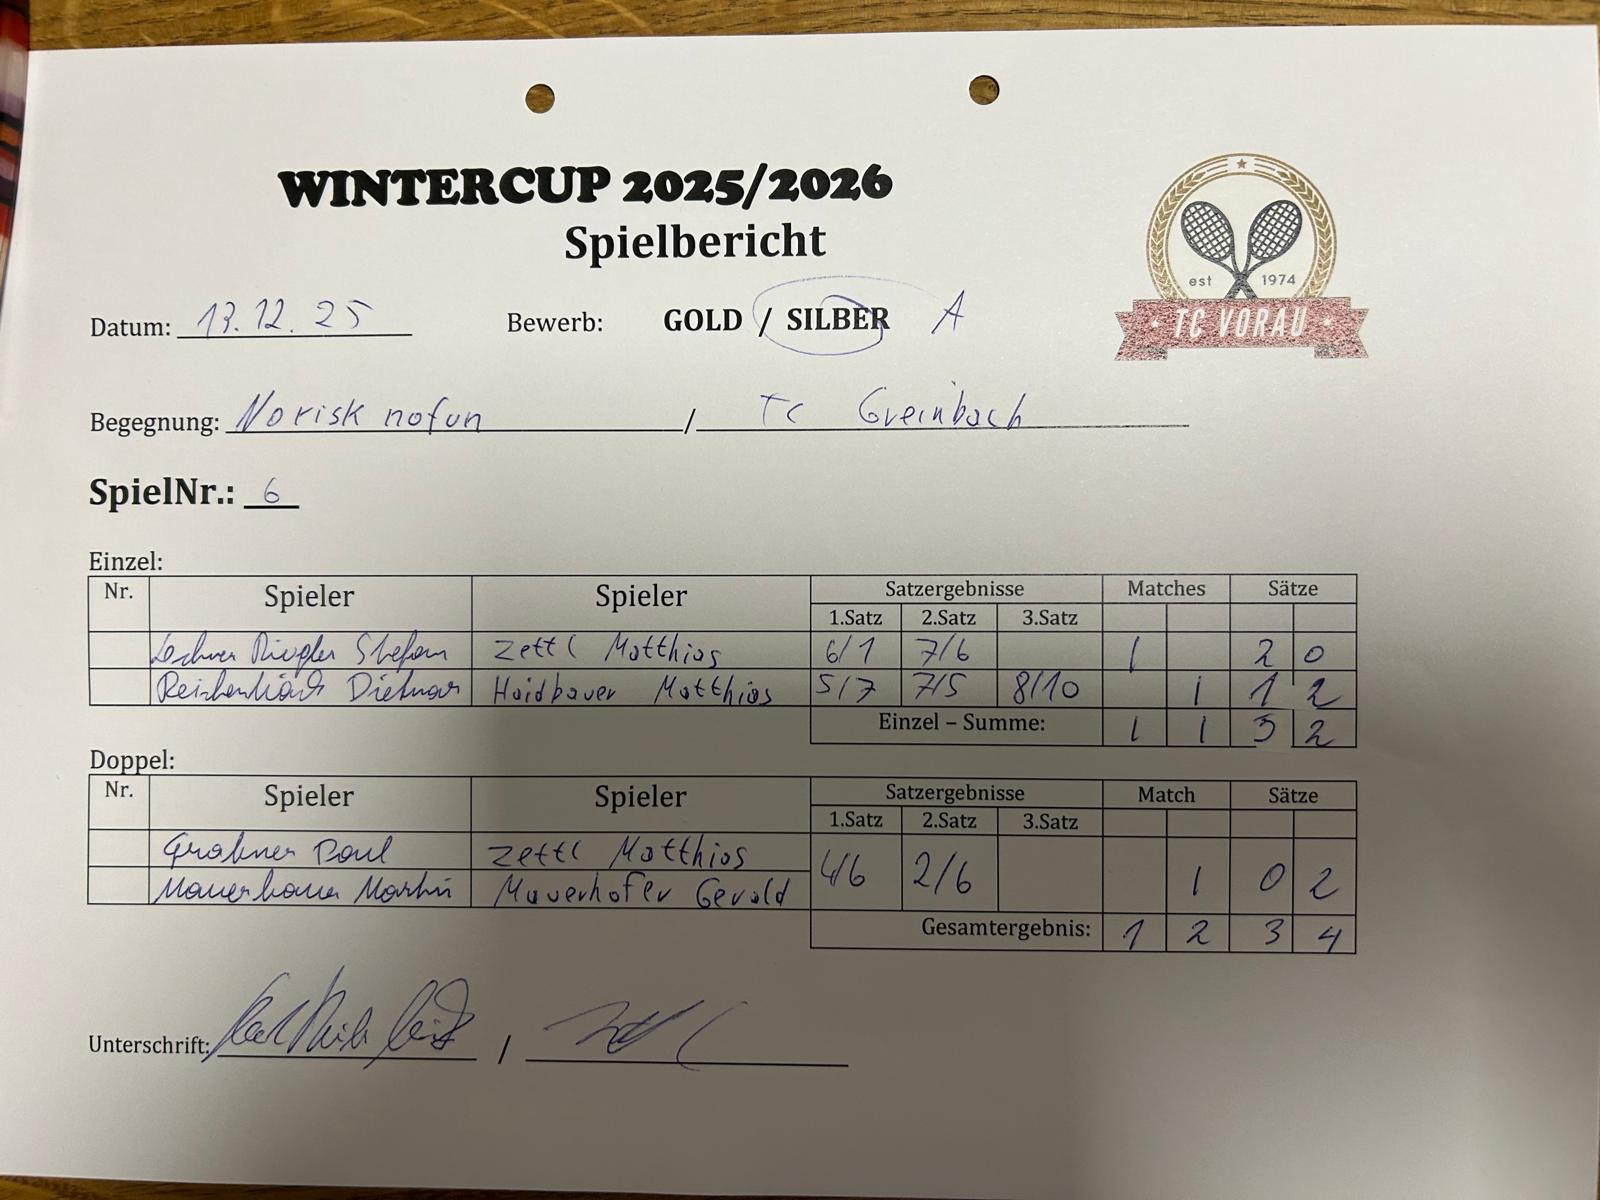 WINTERCUP 2025/2026
Spielbericht
est 1974
TC VORAU
Datum: 13.12.25 Bewerb: GOLD / SILBER A
Begegnung: Norisk nofun / TC Greinbach
SpielNr.: 6
Einzel:
Nr. Spieler Spieler Satzergebnisse Matches Sätze
1.Satz 2.Satz 3.Satz
Lechner Riegler Stefan Zettl Matthias 6/1 7/6 1 2 0
Dietmar Haidbauer Matthias 5/7 7/5 8/10 1 1 2
Einzel – Summe: 1 1 3 2
Doppel:
Nr. Spieler Spieler Satzergebnisse Match Sätze
1.Satz 2.Satz 3.Satz
Paul Zettl Matthias
Martin Mauerhofer Gerald 4/6 2/6 1 0 2
Gesamtergebnis: 1 2 3 4
Unterschrift: /